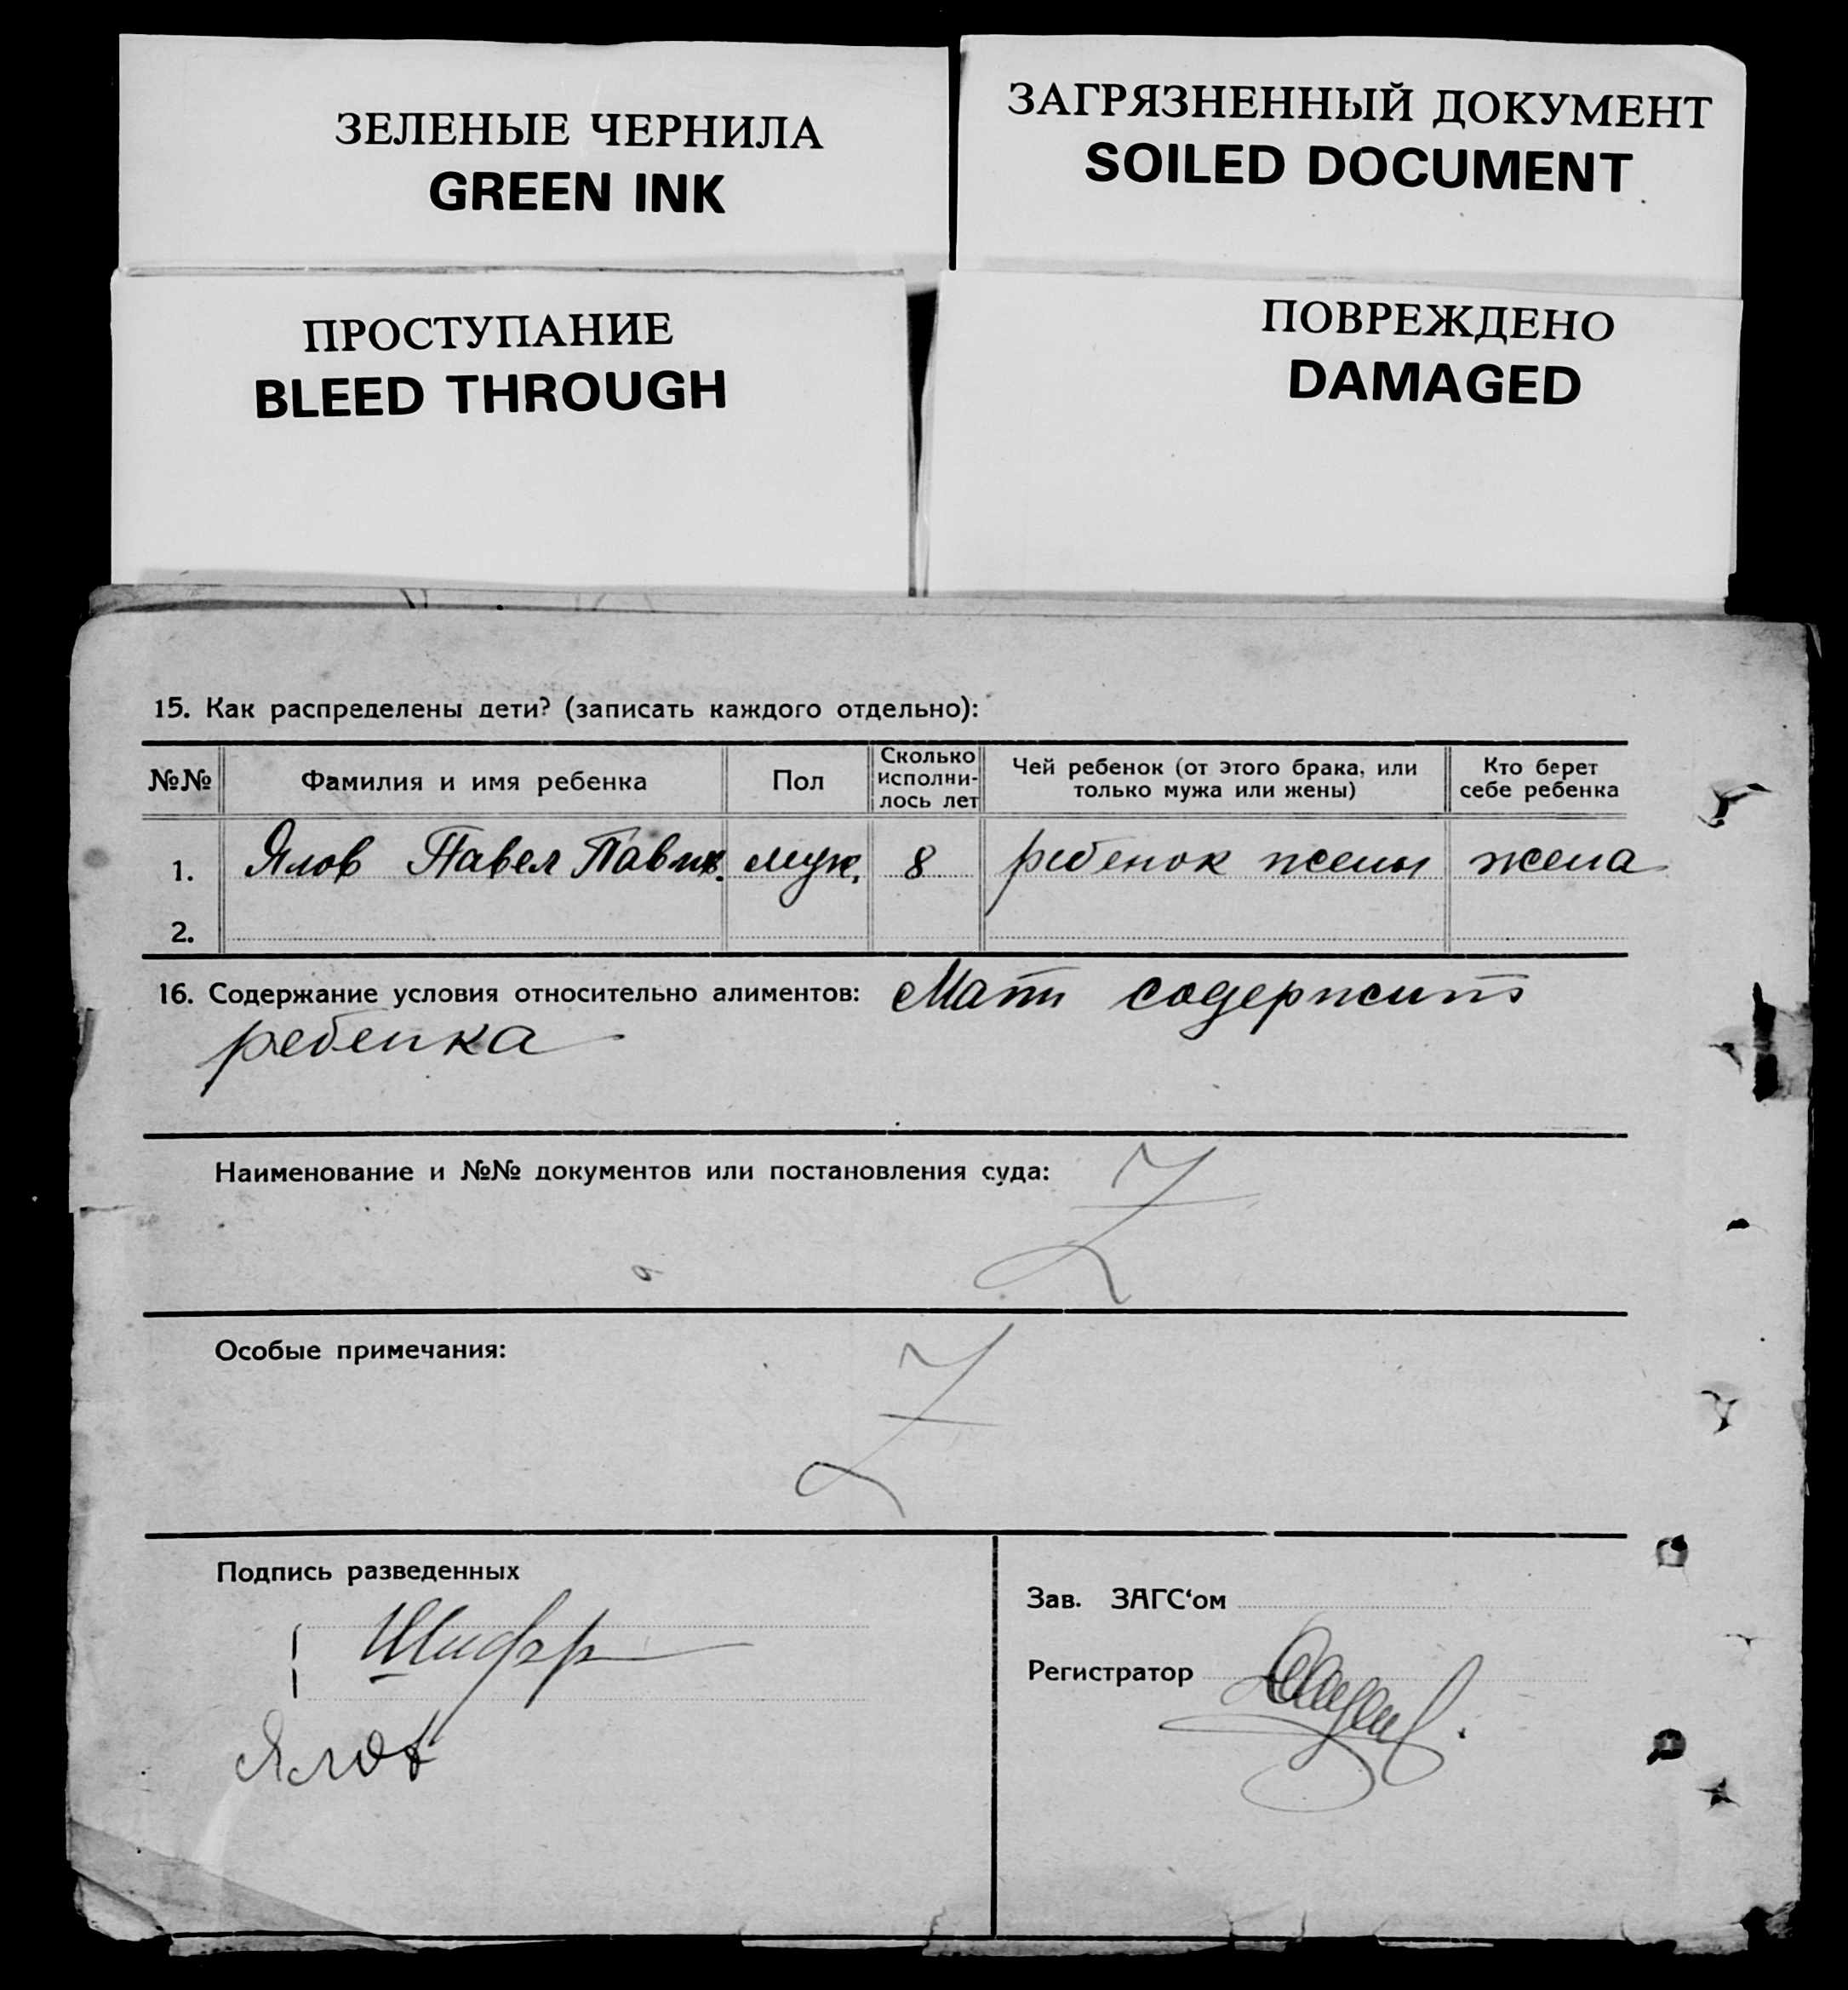 ЗЕЛЕНЫЕ ЧЕРНИЛА
GREEN INK
ЗАГРЯЗНЕННЫЙ ДОКУМЕНТ
SOILED DOCUMENT
ПРОСТУПАНИЕ
BLEED THROUGH
ПОВРЕЖДЕНО
DAMAGED
15. Как распределены дети? (записать каждого отдельно):
№№ Фамилия и имя ребенка Пол Сколько исполни-лось лет Чей ребенок (от этого брака, или только мужа или жены) Кто берет себе ребенка
1. Ялов Павел Павл. муж. 8 ребенок жены жена
2.
16. Содержание условия относительно алиментов: Мать содержит
ребенка
Наименование и №№ документов или постановления суда: Z
Особые примечания: Z
Подпись разведенных
Шифр
Ялов
Зав. ЗАГС‘ом
Регистратор